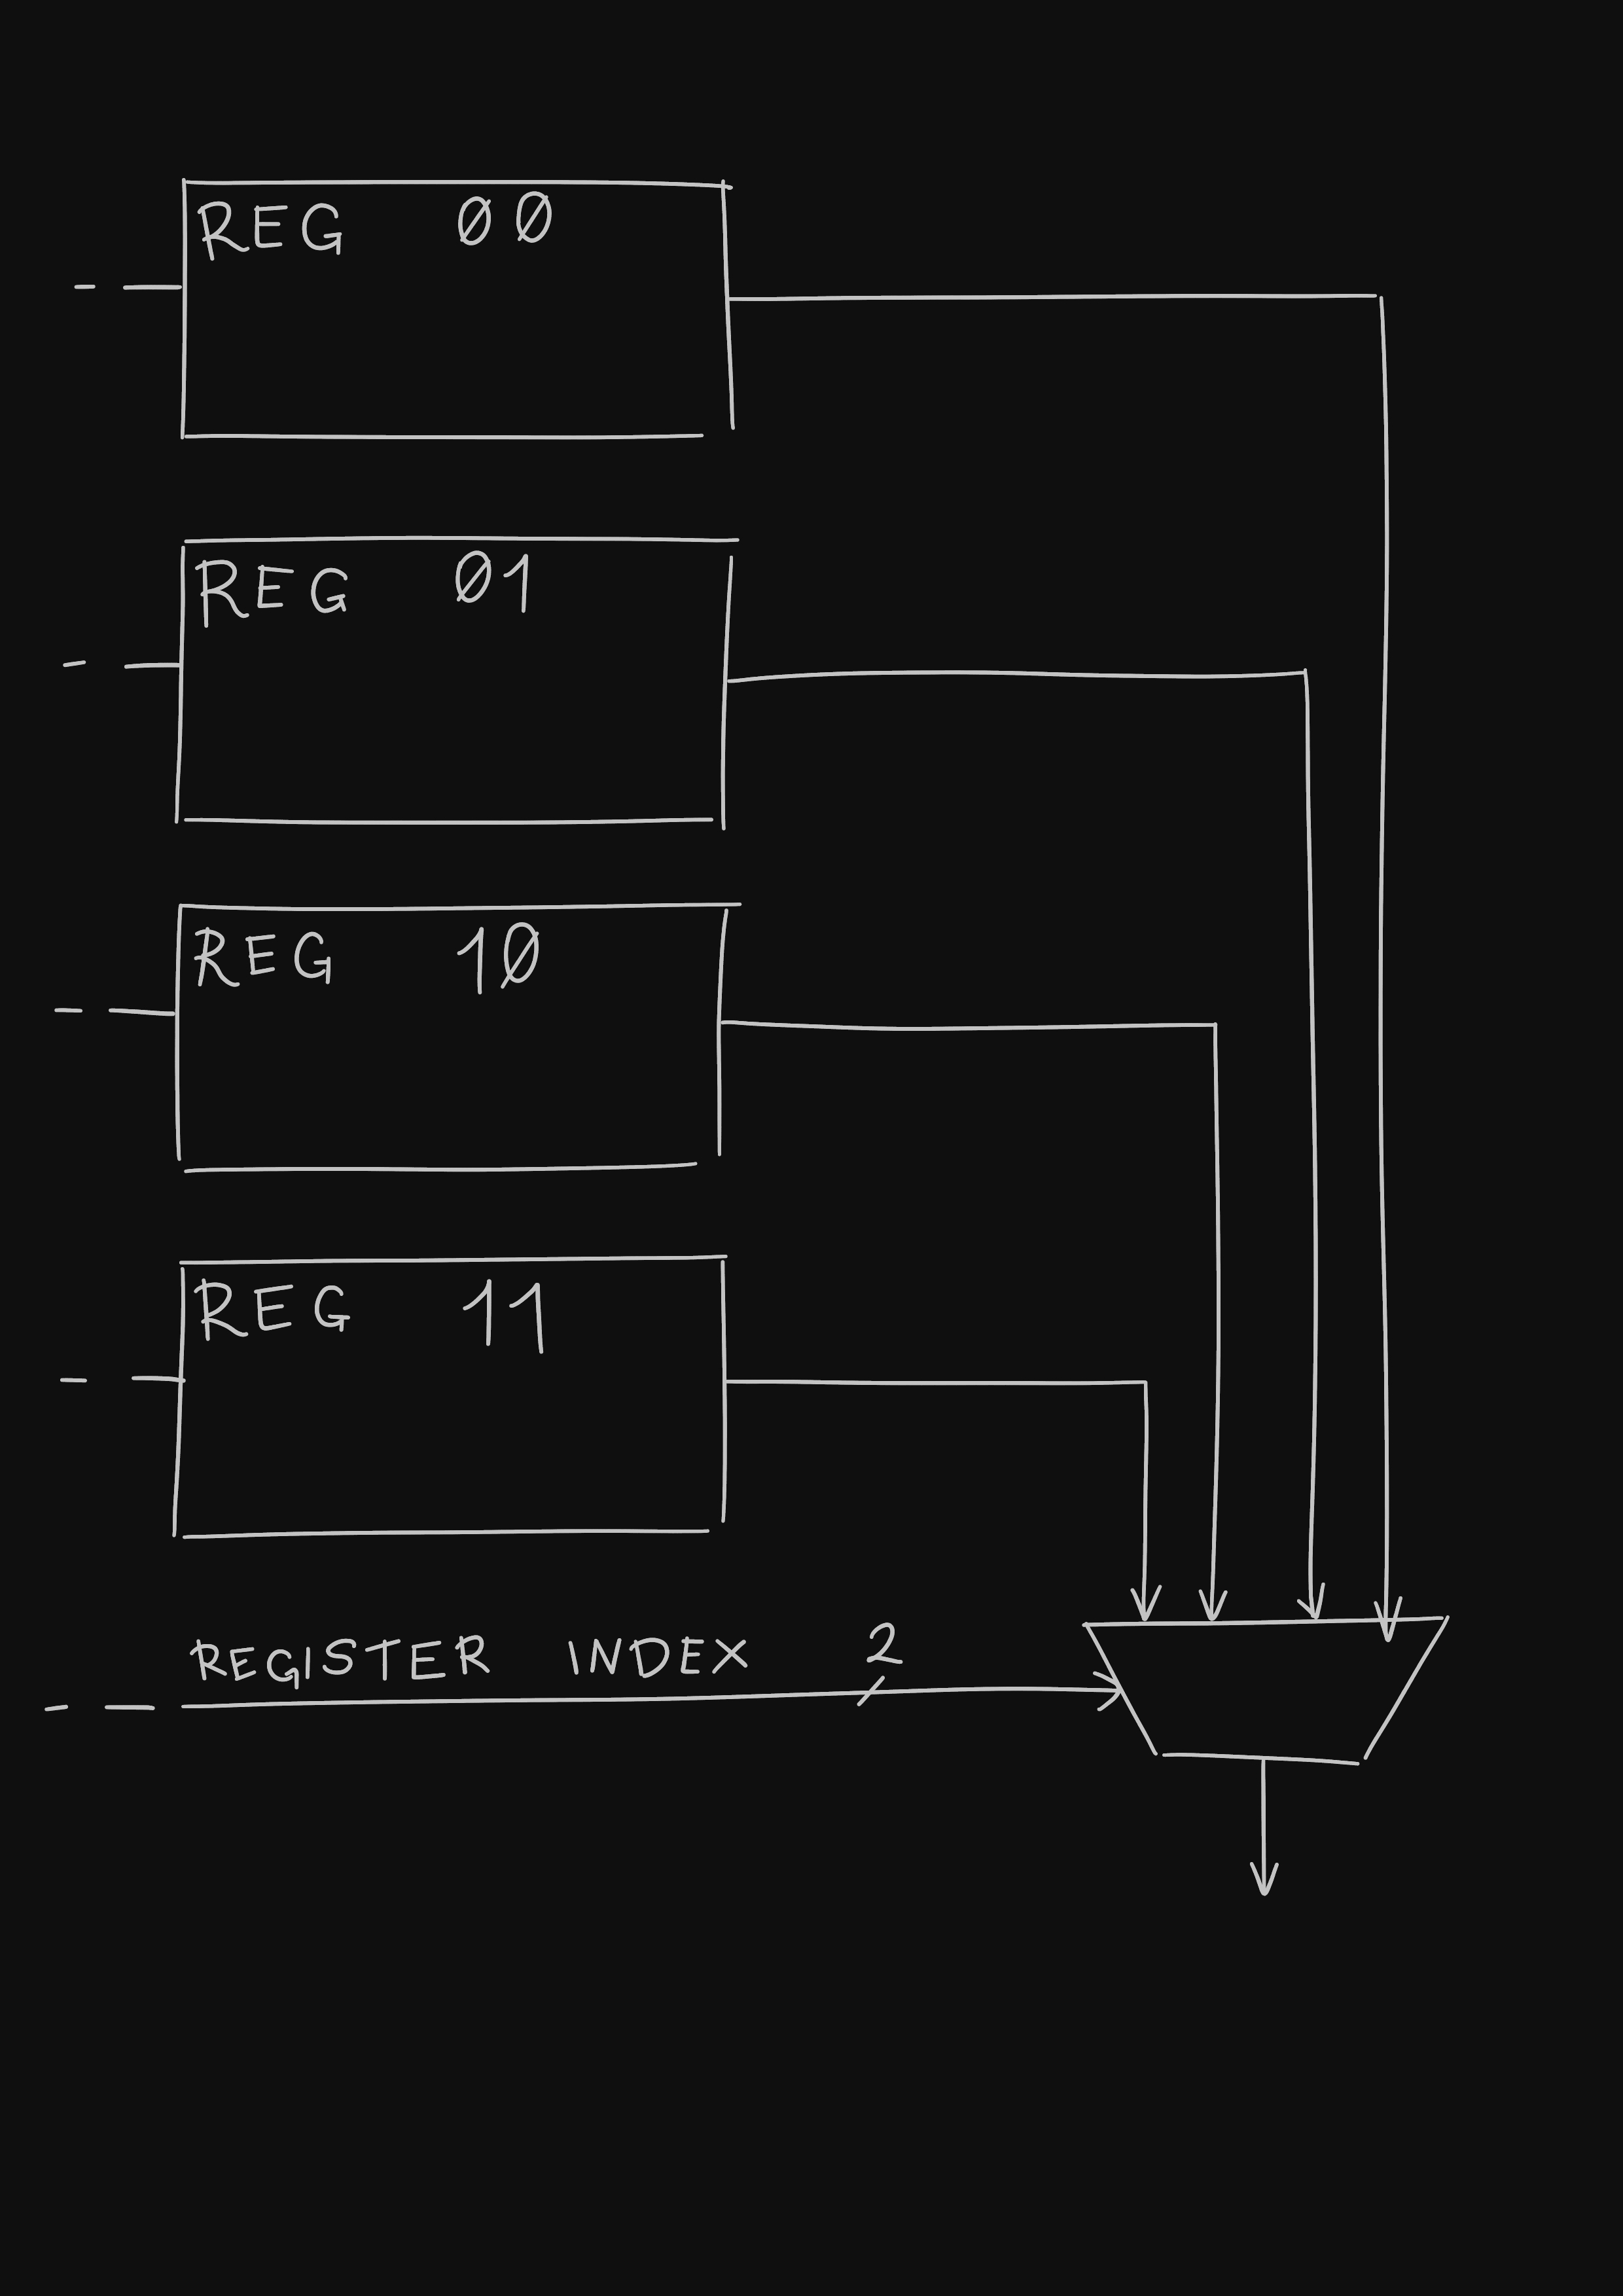 REG 00
REG 01
REG 10
REG 11
REGISTER INDEX 2